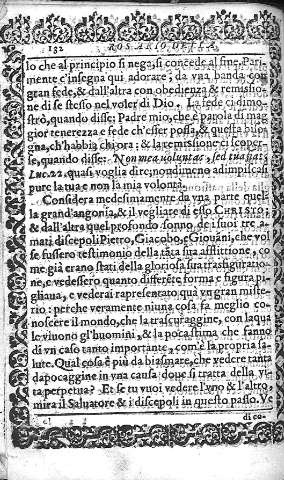 132 ROSARIO DELLA
lo che al principio si nega, si concede al fine. Pari-
mente c'insegna qui adorare; da vna banda con
gran fede, & dall'altra con obedienza & remissio-
ne di se stesso nel voler di Dio. La fede ci dimo-
strò, quando disse; Padre mio, che è parola di mag
gior tenerezza e fede ch'esser possa, & quella biso-
gna, ch'habbia chi ora: & la remissione ci coper-
se, quando disse: Non mea voluntas, sed tua fiat.
Luc. 22. quasi voglia dire; nondimeno adimpiscasi
pure la tua e non la mia volontà.
Considera medesimamente da vna parte quel-
la grand'angonia, & il vegliare di esso CHRISTO;
& dall'altra quel profondo sonno de i suoi tre a-
mati discepoli Pietro, Giacobo, e Giouãni, che vol
se fussero testimonio della tãta sua afflittione, co
me già erano stati della gloriosa sua trasfiguratio-
ne, e vedessero quanto differẽte forma e figura pi-
gliaua, e vederai rapresentato quà vn gran miste-
rio: perche veramente niuna cosa fa meglio co-
noscere il mondo, che la trascuraggine, con laqua
le viuono gl'huomini, & la poca stima che fanno
di vn caso tanto importante, com'è la propria sa-
lute. Qual cosa è più da biasmare, che vedere tanta
dapocaggine in vna causa doue si tratta della vi-
ta perpetua? Et se tu vuoi vedere l'vno & l'altro
mira il Saluatore & i discepoli in questo passo. Ve
di co-